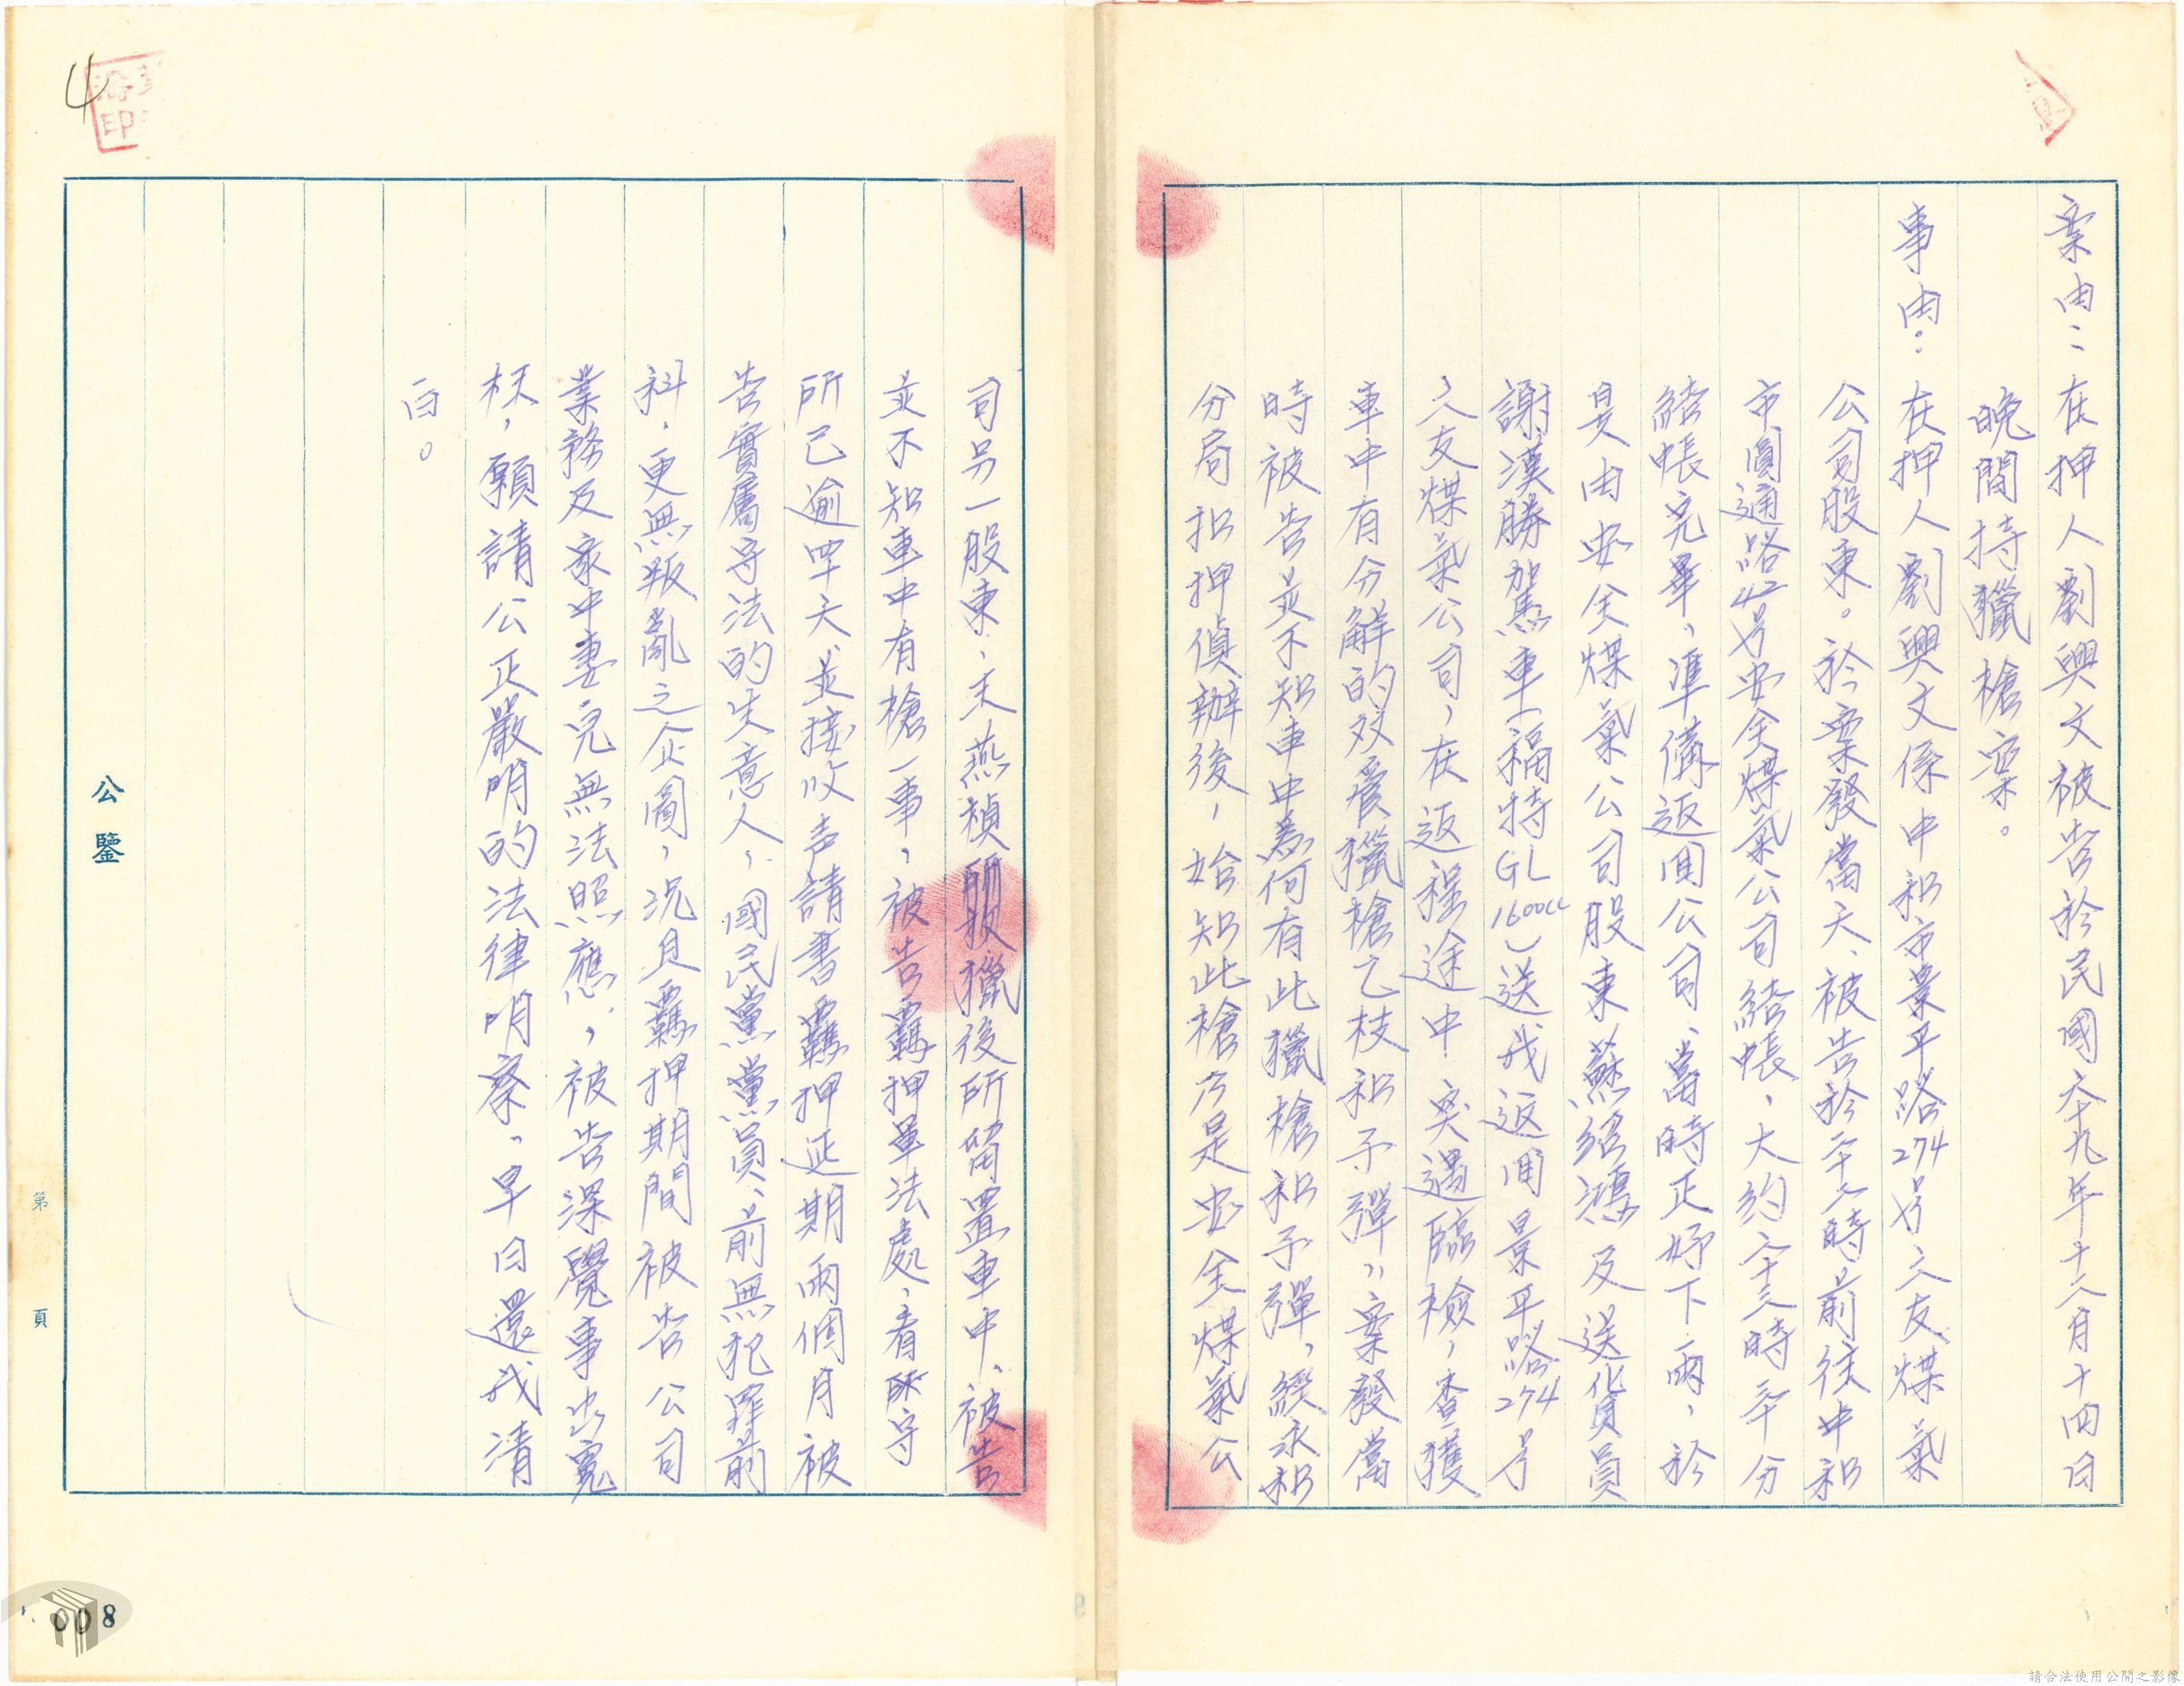 案由:在押人劉興文被告於民國六十九年十二月十四日
晚間持獵槍案。
事由:在押人劉興文係中和市景平路274号三友煤氣
公司股東。於案發當天、被告於二十二時前往中和
市圓通路42号安全煤氣公司結帳,大約二十三時三十分
結帳完畢,準備返回公司、當時正好下雨,於
是由安全煤氣公司股東蘇紹鴻及送貨員
謝漢勝駕車(福特GL1600cc)送我返回景平路274号
三友煤氣公司,在返程途中突遇臨檢,查獲
車中有分解的双管獵槍乙枝和子彈,案發當
時被告並不知車中為何有此獵槍和子彈,經永和
分局扣押偵辦後,始知此槍乃是安全煤氣公
司另一股東,宋燕楨獵後所留置車中、被告
並不知車中有槍一事,被告羈押軍法處,看守
所已逾半天並接收声請書羈押延期兩個月被
告實屬守法的生意人,國民黨黨員、前無犯罪前
科,更無叛亂之企圖,況且羈押期間被告公司
業務及家中妻兒無法照應,被告深覺事出冤
枉,願請公正嚴明的法律明察,早日還我清
白。
公鑒
第 頁
4
印
008
請合法使用公開之影像